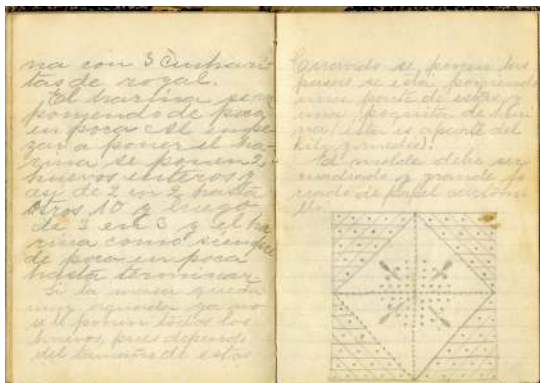 na con 3 Cuchari-
tas de royal.
El harina se va
poniendo de poco
en poco Al empe
zar a poner el ha-
rina se ponen 2
huevos enteros y
así de 2 en 2 hasta
otros 10 y luego
de 3 en 3 y el ha
rina como siempre
de poco en poco
hasta terminar
Si la masa queda
muy aguada ya no
se le ponen todos los
huevos, pues depende
del tamaño de estos
Cuando se ponen las
pasas se está poniendo
una parte de estas y
una poquita de hari
na (esta es aparte del
kilo y medio).
El molde debe ser
cuadrado y grande fo
rrado de papel